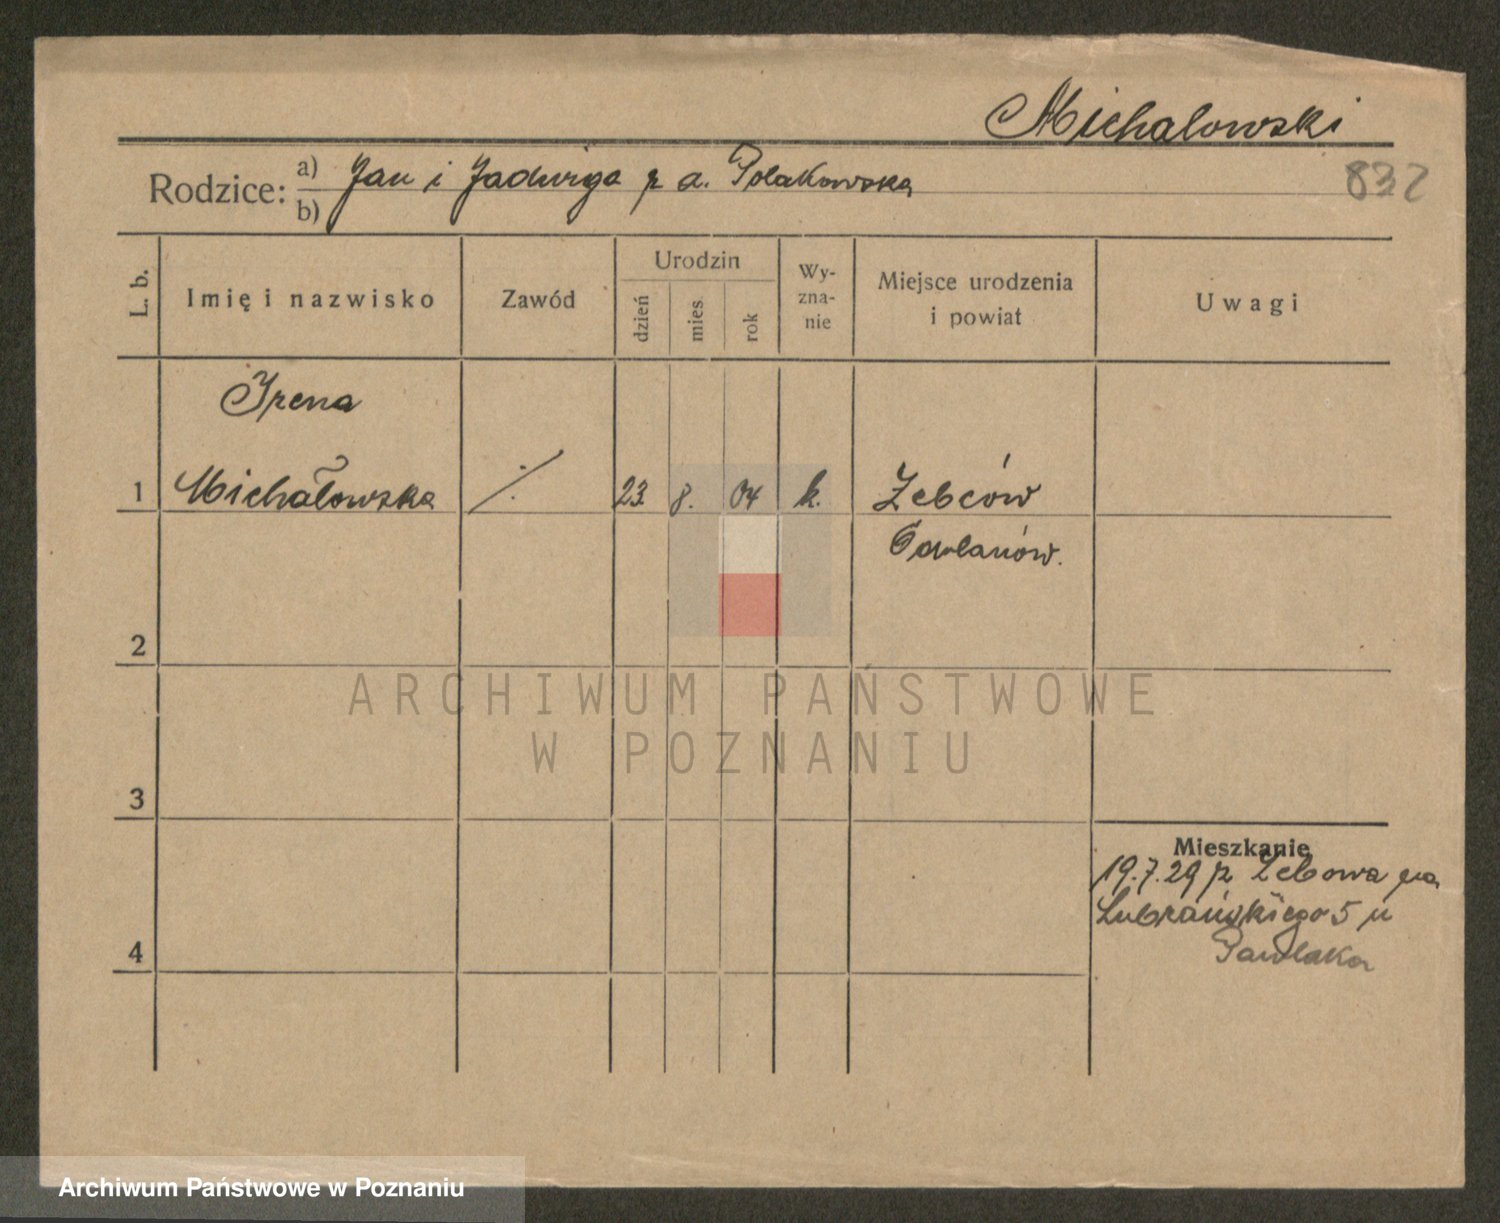 Michalowski
832
Rodzice: a) Jan i Jadwiga z d. Polakowska
b)
L. b. Imię i nazwisko Zawód Urodzin dzień mies rok Wy-zna-nie Miejsce urodzenia i powiat Uwagi
Irena
1 Michałowska ./. 23. 8. 04 k. Zebców
Odolanów.
2
ARCHIWUM PAŃSTWOWE
W POZNANIU
3
Mieszkanie
19.7.29 z Zebowa na
Lubrańskiego 5 u
4 Pawlaka
Archiwum Państwowe w Poznaniu